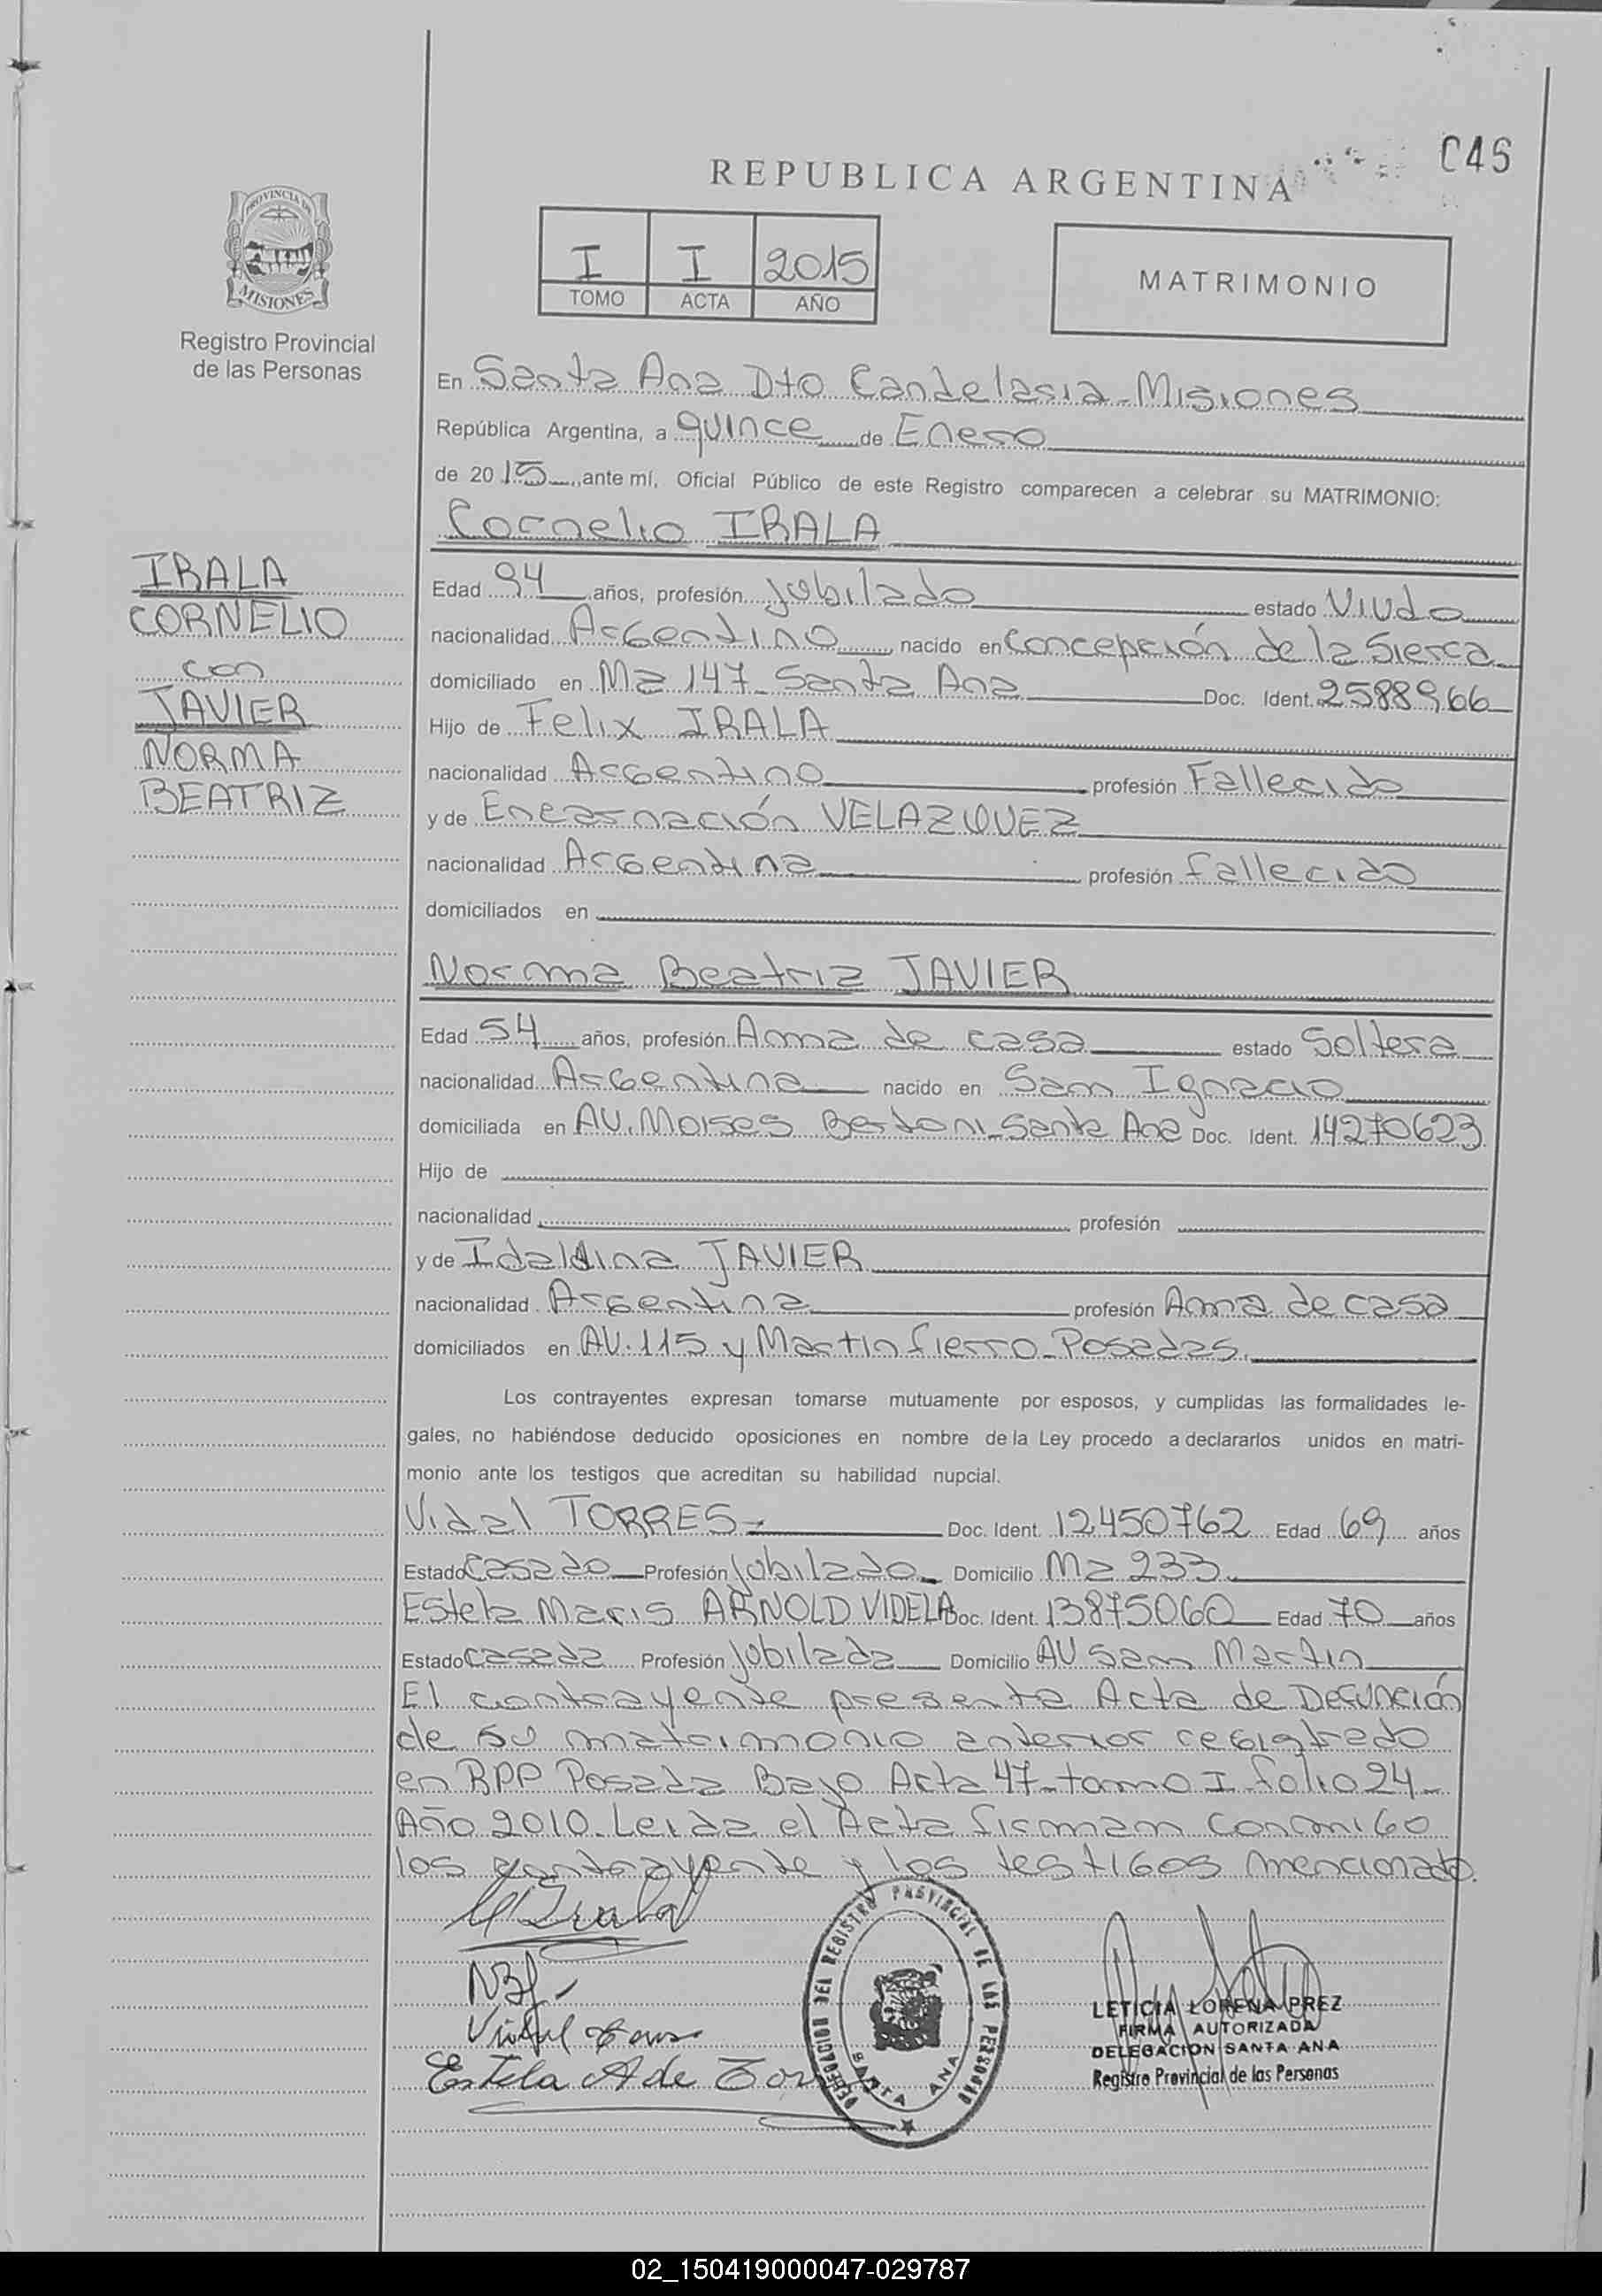 C46
REPUBLICA ARGENTINA
PROVINCIA DE
MISIONES
Registro Provincial
de las Personas
I I 2015
TOMO ACTA AÑO
MATRIMONIO
En Santa Ana Dto Candelaria-Misiones
República Argentina, a quince de Enero
de 2015, ante mí, Oficial Público de este Registro comparecen a celebrar su MATRIMONIO:
Cornelio IRALA
IRALA
CORNELIO
con
JAVIER
NORMA
BEATRIZ
Edad 94 años, profesión jubilado estado Viudo
nacionalidad Argentino nacido en Concepción de la Sierra
domiciliado en Mz 147 Santa Ana Doc. Ident. 2588966
Hijo de Felix IRALA
nacionalidad Argentino profesión Fallecido
y de Encarnación VELAZQUEZ
nacionalidad Argentina profesión fallecido
domiciliados en
Norma Beatriz JAVIER
Edad 54 años, profesión Ama de casa estado Soltera
nacionalidad Argentina nacido en San Ignacio
domiciliada en AV. Moises Bertoni-Santa Ana Doc. Ident. 14270623
Hijo de
nacionalidad profesión
y de Idalina JAVIER
nacionalidad Argentina profesión Ama de casa
domiciliados en AV. 115 y Martin fierro-Posadas.
Los contrayentes expresan tomarse mutuamente por esposos, y cumplidas las formalidades le-
gales, no habiéndose deducido oposiciones en nombre de la Ley procedo a declararlos unidos en matri-
monio ante los testigos que acreditan su habilidad nupcial.
Vidal TORRES- Doc. Ident. 12450762 Edad 69 años
Estado Casado Profesión Jubilado Domicilio Mz 233
Estela Maris ARNOLD VIDELA Doc. Ident. 13875060 Edad 70 años
Estado Casada Profesión Jubilada Domicilio AV San Martin
El contrayente presenta Acta de Defunción
de su matrimonio anterior registrado
en RPP Posada Bajo Acta 47-tomo I folio 24-
Año 2010. Leida el Acta firman conmigo
los contrayente y los testigos mencionado.
Irala
NBJ-
Vidal Torres
Estela A de Torres
DELEGACION DEL REGISTRO PROVINCIAL DE LAS PERSONAS
SANTA ANA
LETICIA LORENA PREZ
FIRMA AUTORIZADA
DELEGACION SANTA ANA
Registro Provincial de las Personas
02_150419000047-029787